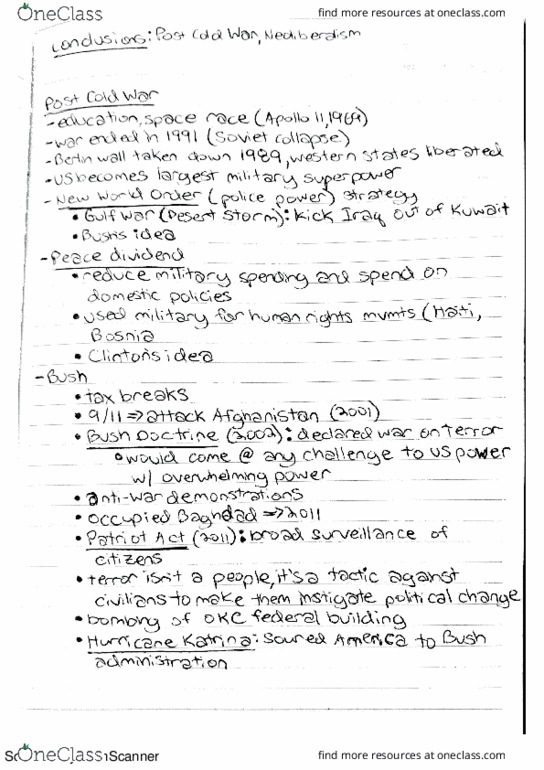 OneClass
find more resources at oneclass.com
Conclusions: Post Cold War, Neoliberalism
Post Cold War
-education, space race (Apollo 11, 1969)
-war ended in 1991 (Soviet collapse)
-Berlin wall taken down 1989, western states liberated
-US becomes largest military superpower
-New World Order (police power) strategy
• Gulf War (Desert Storm): kick Iraq out of Kuwait
• Bush's idea
-Peace dividend
• reduce military spending and spend on
domestic policies
• used military for human rights mvmts (Haiti,
Bosnia
• Clinton's idea
-Bush
• tax breaks
• 9/11 => attack Afghanistan (2001)
• Bush Doctrine (2002): declared war on terror
◦ would come @ any challenge to US power
w/ overwhelming power
• anti-war demonstrations
• occupied Baghdad => 2011
• Patriot Act (2011): broad surveillance of
citizens
• terror isn't a people, it's a tactic against
civilians to make them instigate political change
• bombing of OKC federal building
• Hurricane Katrina: soured America to Bush
administration
OneClass
Scanner
find more resources at oneclass.com